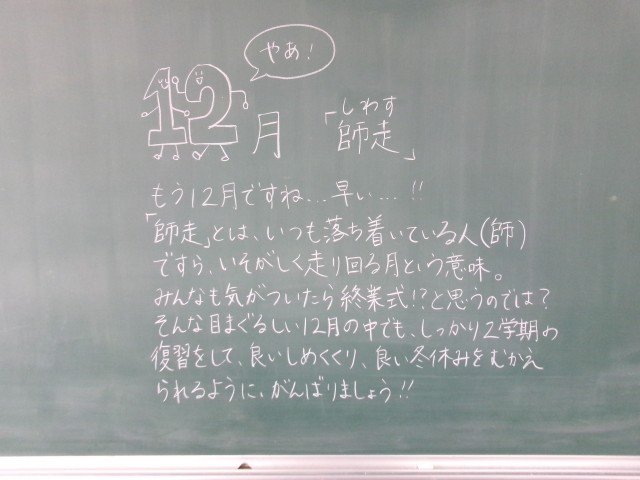 やあ!
12月
しわす
「師走」
もう12月ですね…早い…!!
「師走」とは、いつも落ち着いている人(師)
ですら、いそがしく走り回る月という意味。
みんなも気がついたら終業式!?と思うのでは?
そんな目まぐるしい12月の中でも、しっかり2学期の
復習をして、良いしめくくり、良い冬休みをむかえ
られるように、がんばりましょう!!